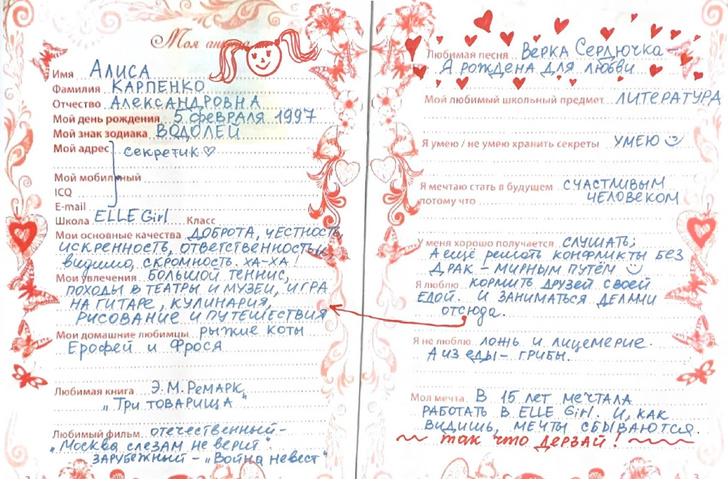 Моя анкета
Имя АЛИСА
Фамилия КАРПЕНКО
Отчество АЛЕКСАНДРОВНА
Мой день рождения 5 февраля 1997
Мой знак зодиака ВОДОЛЕЙ
Мой адрес секретик
Мой мобильный
ICQ
E-mail
Школа ELLE Girl Класс
Мои основные качества доброта, честность,
искренность, ответственность и,
видимо, скромность. ха-ха!
Мои увлечения большой теннис,
походы в театры и музеи, игра
на гитаре, кулинария,
рисование и путешествия
Мои домашние любимцы рыжие коты
Ерофей и Фрося
Любимая книга Э.М. Ремарк,
"Три товарища"
Любимый фильм отечественный-
"Москва слезам не верит".
зарубежный - "Война невест"
Любимая песня Верка Сердючка
Я рождена для любви
Мой любимый школьный предмет ЛИТЕРАТУРА
Я умею / не умею хранить секреты УМЕЮ
Я мечтаю стать в будущем счастливым
потому что человеком
У меня хорошо получается слушать;
А ещё решать конфликты без
драк - мирным путём
Я люблю кормить друзей своей
едой. и заниматься делами
отсюда.
Я не люблю ложь и лицемерие.
А из еды - грибы.
Моя мечта В 15 лет мечтала
работать в ELLE Girl. И, как
видишь, мечты сбываются.
так что дерзай!